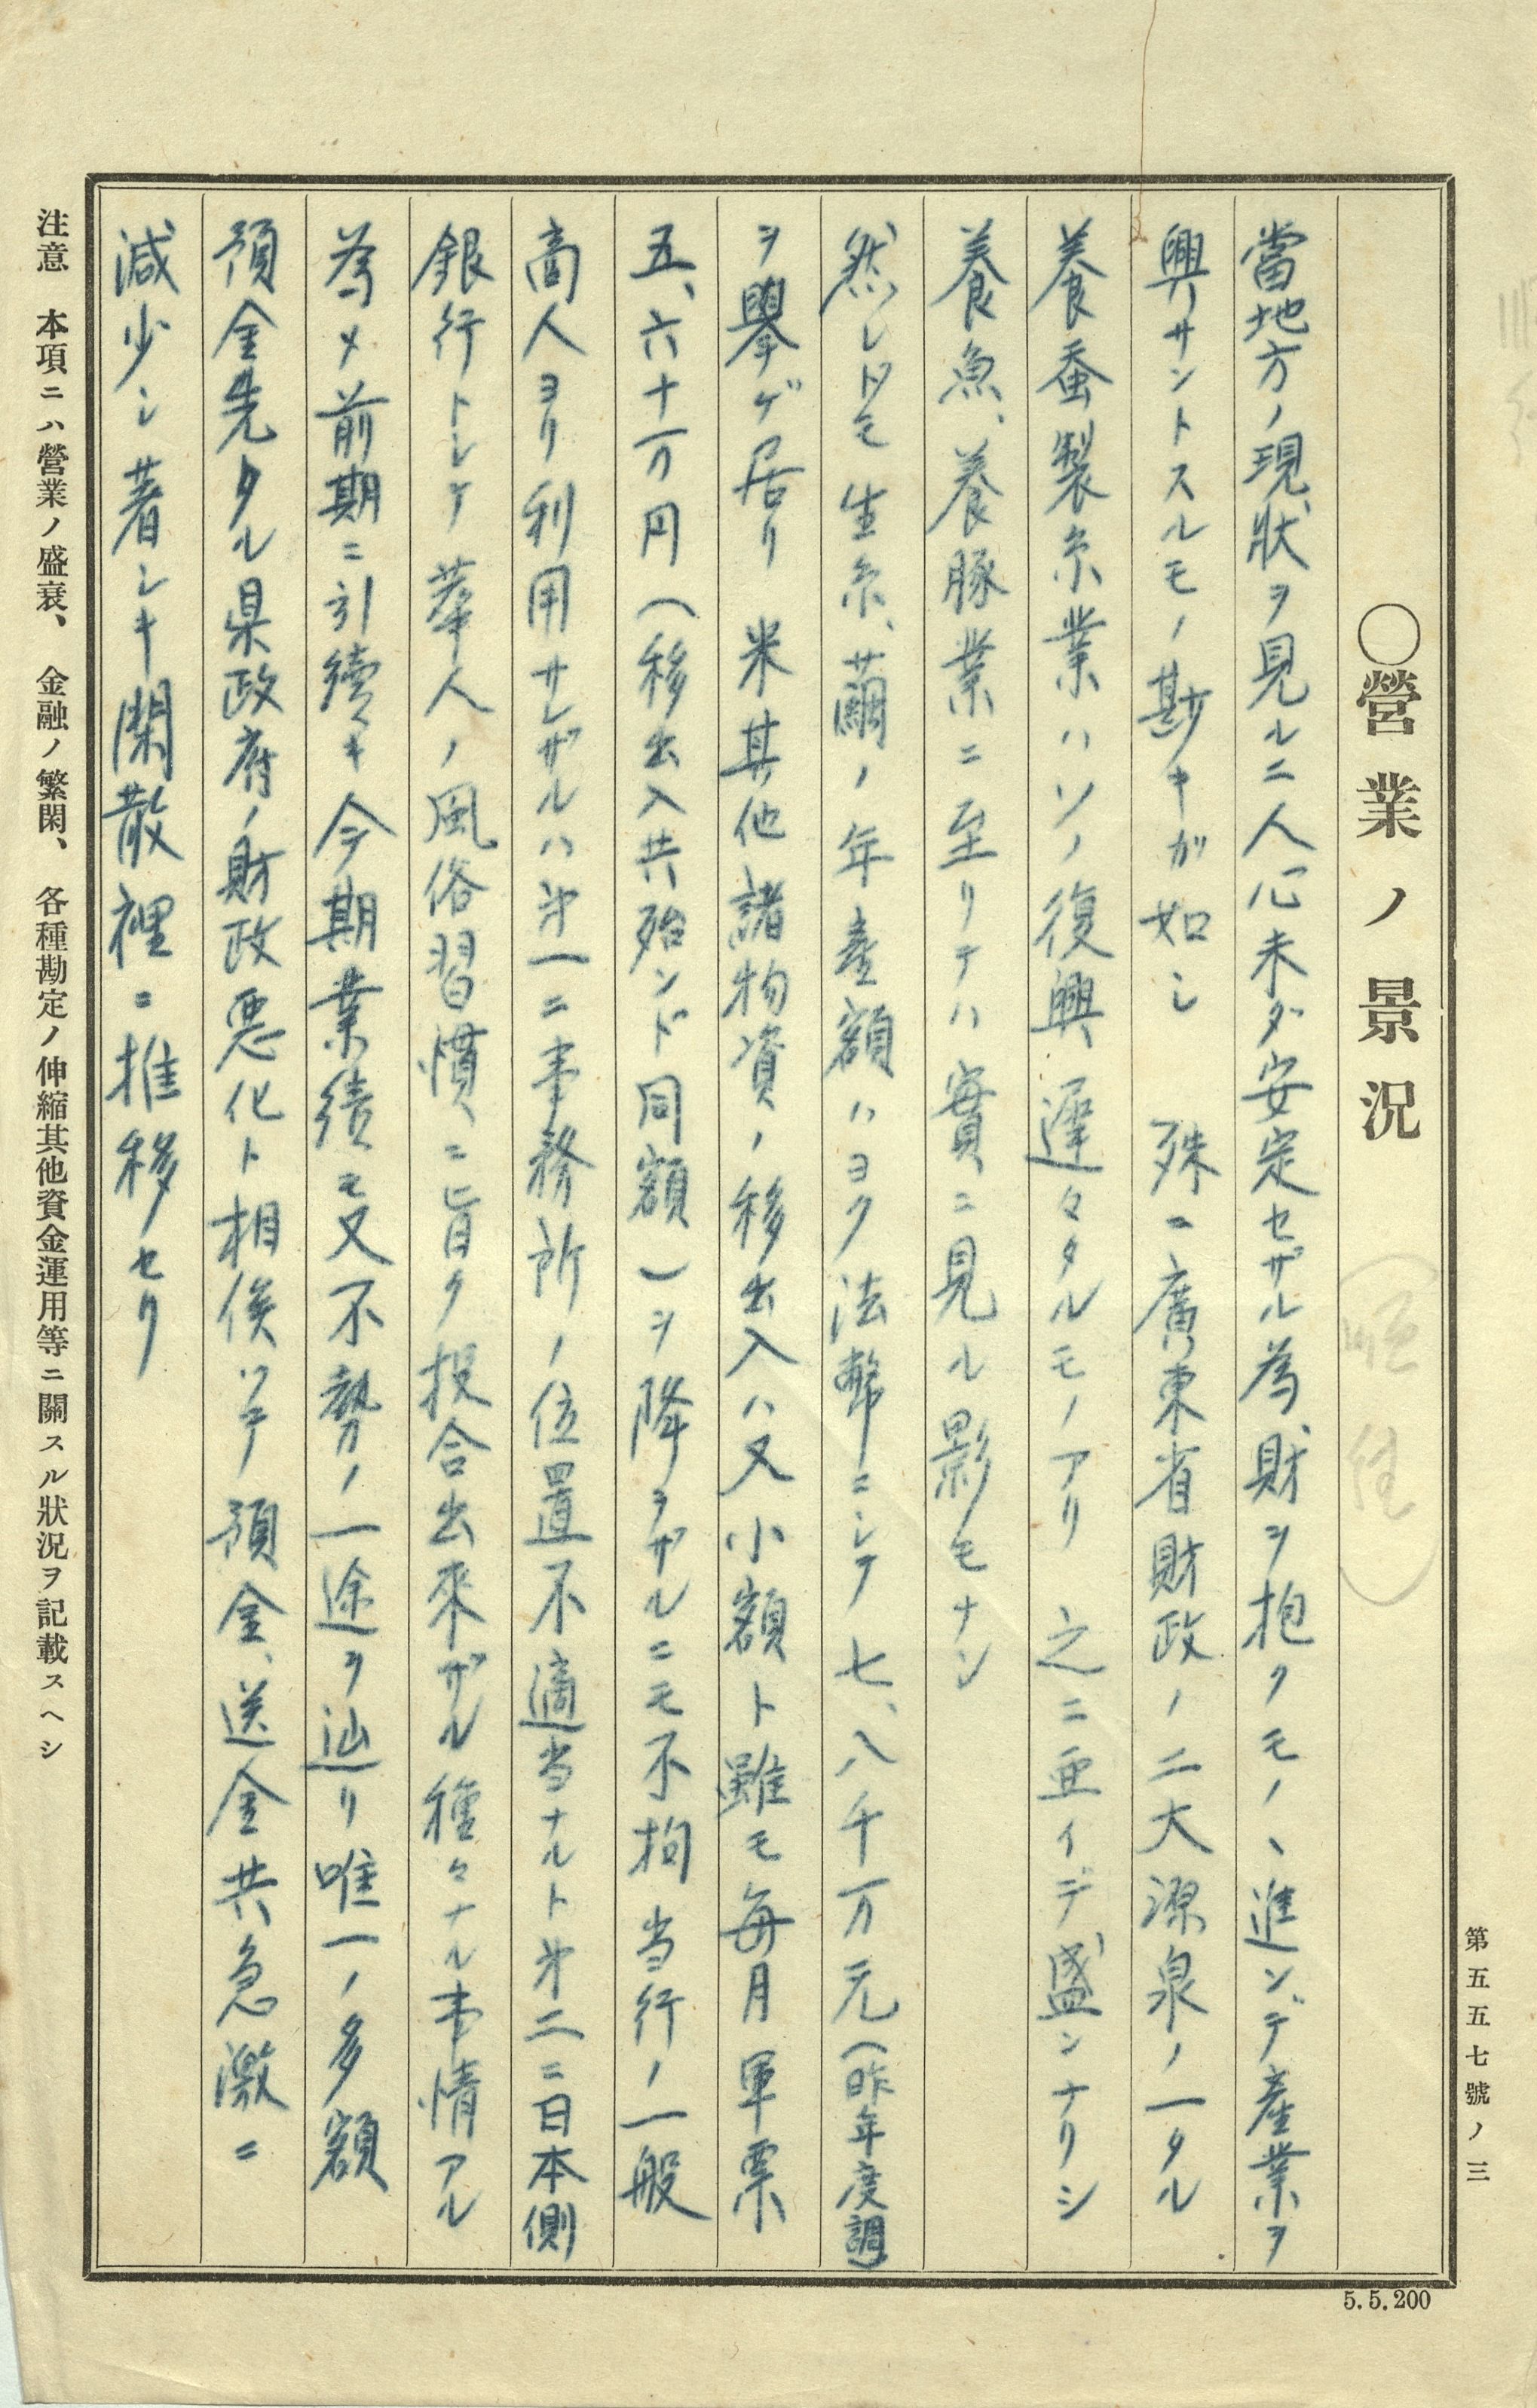 第五五七號ノ三
○營業ノ景況
(順徳)
當地方ノ現狀ヲ見ルニ人心未ダ安定セザル為、財ヲ抱クモノヽ進ンデ產業ヲ
興サントスルモノ尠キガ如シ　殊ニ廣東省財政ノ二大源泉ノ一タル
養蚕製糸業ハソノ復興遅々タルモノアリ　之ニ亜イデ盛ンナリシ
養魚、養豚業ニ至リテハ實ニ見ル影モナシ
然レドモ生糸、繭ノ年產額ハヨク法幣ニシテ七、八千万元(昨年度調)
ヲ擧ゲ居リ　米其他諸物資ノ移出入ハ又小額ト雖モ每月軍票
五、六十万円(移出入共殆ンド同額)ヲ降ラザルニモ不拘当行ノ一般
商人ヨリ利用サレザルハ㐧一ニ事務所ノ位置不適当ナルト㐧二ニ日本側
銀行トシテ華人ノ風俗習慣ニ旨ク投合出來ザル種々ナル事情アル
為メ前期ニ引續キ今期業績モ又不勢ノ一途ヲ辿リ唯一ノ多額
預金先タル県政府ノ財政悪化ト相俟ツテ預金、送金共急激ニ
減少シ著シキ閑散裡ニ推移セリ
注意　本項ニハ營業ノ盛衰、金融ノ繁閑、各種勘定ノ伸縮其他資金運用等ニ關スル狀況ヲ記載スヘシ
5.5.200